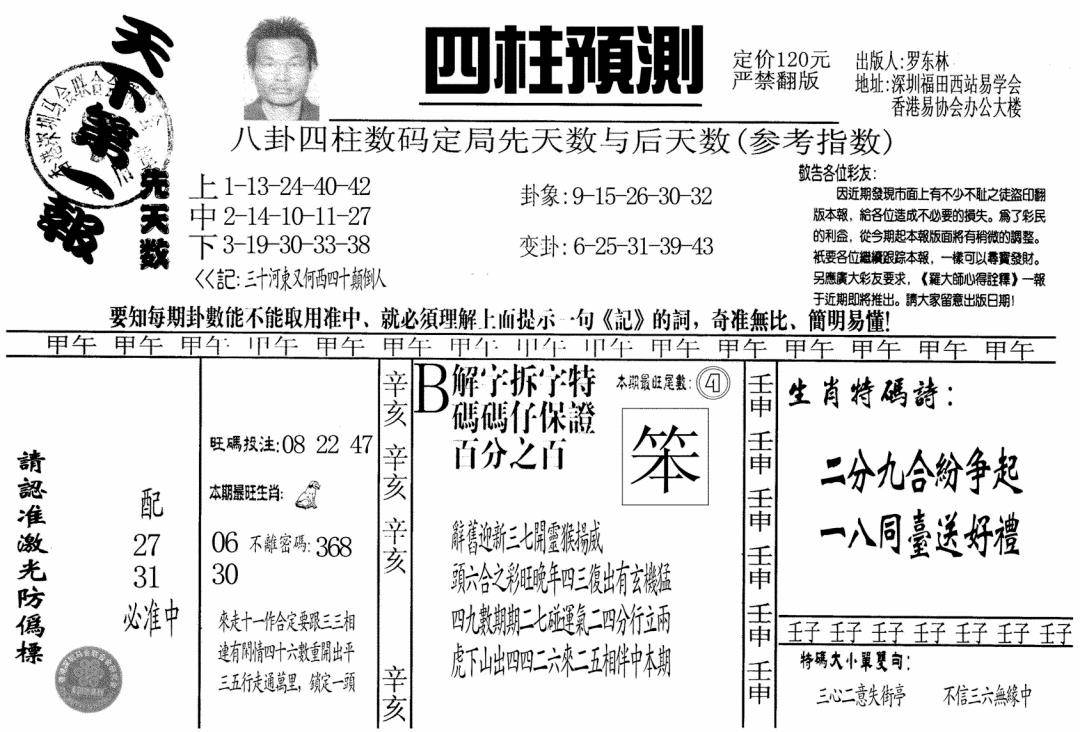 天下第一報
四柱預測
定价120元
严禁翻版
出版人:罗东林
地址:深圳福田西站易学会
香港易协会办公大楼
八卦四柱数码定局先天数与后天数(参考指数)
先天数
上 1-13-24-40-42
中 2-14-10-11-27
下 3-19-30-33-38
<<記:三十河東又何西四十顛倒人
卦象:9-15-26-30-32
变卦:6-25-31-39-43
敬告各位彩友:
因近期發現市面上有不少不耻之徒盜印翻
版本報,給各位造成不必要的損失。爲了彩民
的利益,從今期起本報版面將有稍微的調整。
衹要各位繼續跟踪本報,一樣可以尋寶發財。
另應廣大彩友要求,《羅大師心得詮釋》一報
于近期即將推出。請大家留意出版日期!
要知每期卦數能不能取用准中、就必須理解上面提示一句《記》的詞,奇准無比、簡明易懂!
甲午 甲午 甲午 甲午 甲午 甲午 甲午 甲午 甲午 甲午 甲午 甲午 甲午 甲午 甲午
請認准激光防僞標
配
27
31
必准中
旺碼投注:08 22 47
本期最旺生肖:
06 不離密碼:368
30
來走十一作合定要跟三三相
連有閑情四十六數重開出平
三五行走通萬里,鎖定一頭
辛亥
辛亥
辛亥
辛亥
B解字拆字特
碼碼仔保證
百分之百
本期最旺尾數:④
笨
辭舊迎新三七開靈猴揚威
頭六合之彩旺晚年四三復出有玄機猛
四九數期期二七碰運氣二四分行立兩
虎下山出四四二六來二五相伴中本期
壬申
壬申
壬申
壬申
壬申
壬申
生肖特碼詩:
二分九合紛争起
一八同臺送好禮
壬子 壬子 壬子 壬子 壬子 壬子 壬子
特碼大小單雙句:
三心二意失街亭 不信三六無緣中